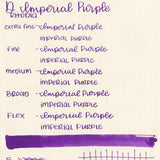 D. Imperial Purple
Rhodia
extra fine - Imperial Purple
IMPERIAL PURPLE
Fine - Imperial Purple
IMPERIAL PURPLE
medium - Imperial Purple
IMPERIAL PURPLE
BROAD - Imperial Purple
IMPERIAL PURPLE
FLEX - Imperial Purple
IMPERIAL PURPLE